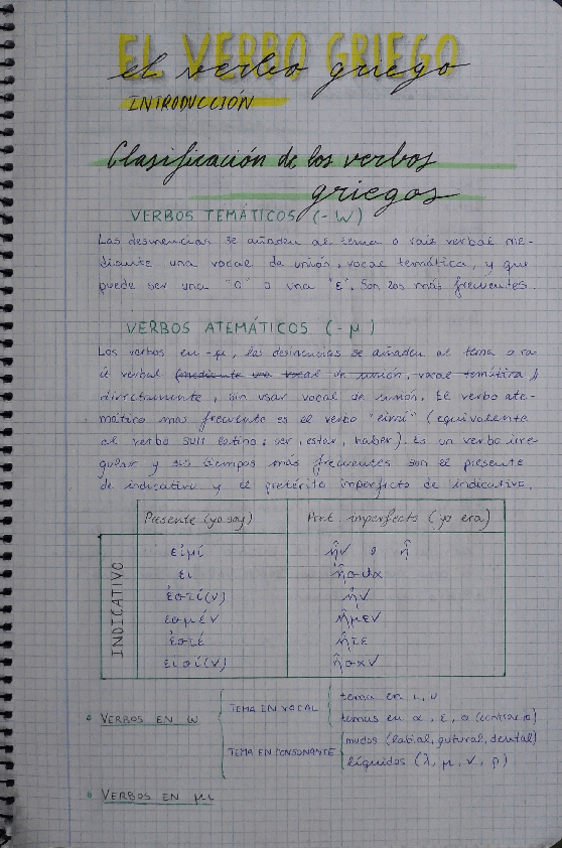 EL VERBO GRIEGO
el verbo griego
INTRODUCCIÓN
Clasificación de los verbos
griegos
VERBOS TEMÁTICOS (-W)
Las desinencias se añaden al tema o raiz verbal me-
diante una vocal de unión, vocal temática, y que
puede ser una "O" o una "E". Son los más frecuentes.
VERBOS ATEMÁTICOS (-μ)
Los verbos en -μ, las desinencias se añaden al tema o ra-
iz verbal (mediante una vocal de unión, vocal temática)
directamente, sin usar vocal de unión. El verbo ate-
mático más frecuente es el verbo "eimi" (equivalente
al verbo sum latino: ser, estar, haber). Es un verbo irre-
gular y sus tiempos más frecuentes son el presente
de indicativo y el pretérito imperfecto de indicativo.
Presente (yo soy) Pret. imperfecto (yo era)
INDICATIVO
εἰμί ἦν o ἦ
εἶ ἦσθα
ἐστί(ν) ἦν
ἐσμέν ἦμεν
ἐστέ ἦτε
εἰσί(ν) ἦσαν
VERBOS EN W
TEMA EN VOCAL
tema en ι, υ
temas en α, ε, ο (contracto)
TEMA EN CONSONANTE
mudos (labial, gutural, dental)
líquidos (λ, μ, ν, ρ)
VERBOS EN μι